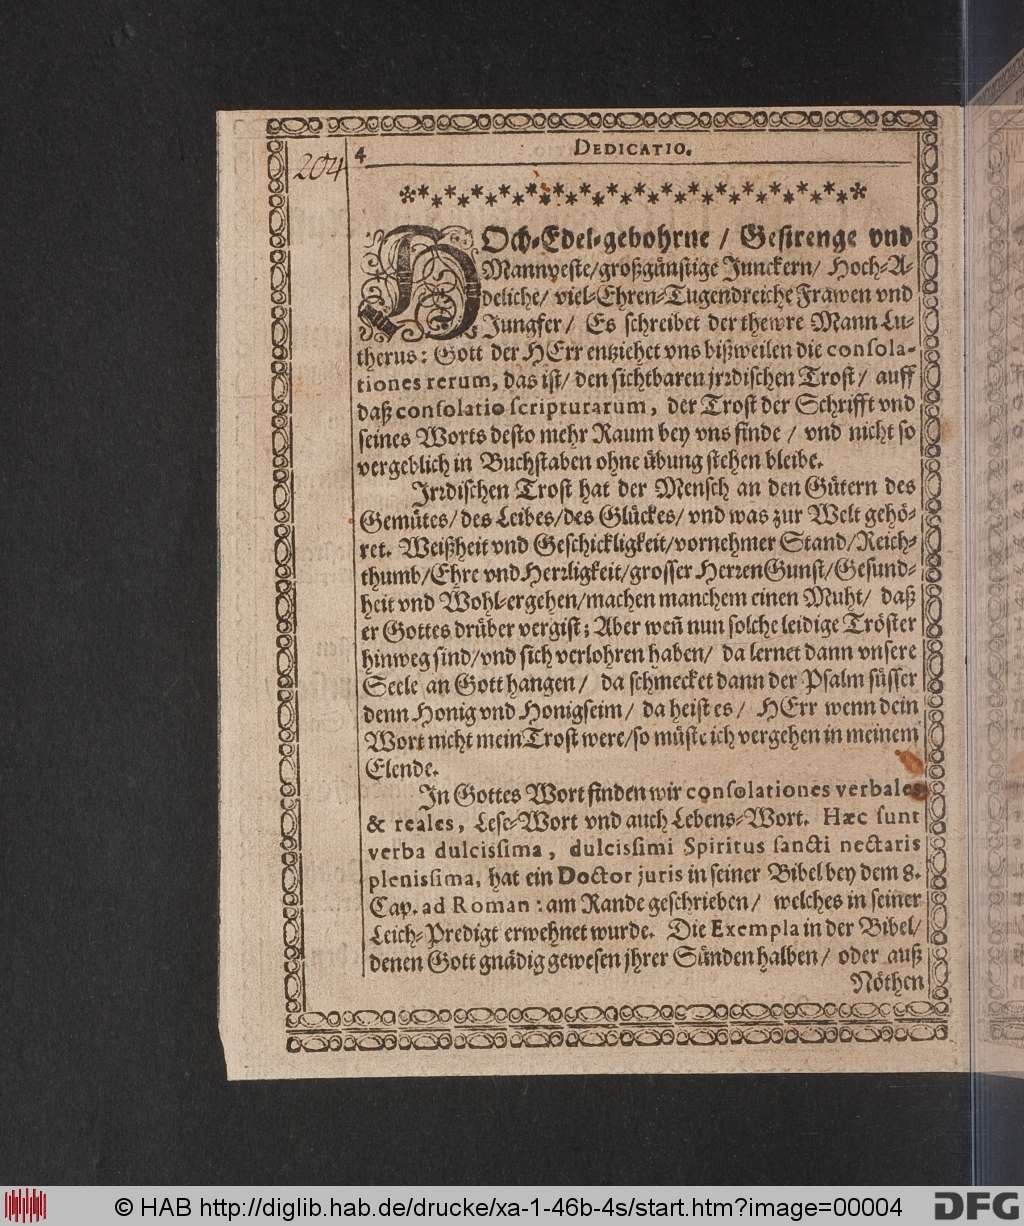 204
4 DEDICATIO.
HOch-Edel-gebohrne / Gestrenge vnd
Mannveste/großgünstige Junckern/ Hoch-A-
deliche/ viel-Ehren-Tugendreiche Frawen vnd
Jungfer/ Es schreibet der thewre Mann Lu-
therus: Gott der HErr entziehet vns bißweilen die conſola-
tiones rerum, das ist/ den sichtbaren jrꝛdischen Trost/ auff
daß conſolatio ſcripturarum, der Trost der Schrifft vnd
seines Worts desto mehr Raum bey vns finde / vnd nicht so
vergeblich in Buchstaben ohne übung stehen bleibe.
Jrꝛdischen Trost hat der Mensch an den Gütern des
Gemütes/ des Leibes/des Glückes/ vnd was zur Welt gehö-
ret. Weißheit vnd Geschickligkeit/vornehmer Stand/Reich-
thumb/Ehre vnd Herꝛligkeit/grosser HerꝛenGunst/Gesund-
heit vnd Wohl-ergehen/machen manchem einen Muht/ daß
er Gottes drüber vergist; Aber weñ nun solche leidige Tröster
hinweg sind/vnd sich verlohren haben/ da lernet dann vnsere
Seele an Gott hangen/ da schmecket dann der Psalm süsser
denn Honig vnd Honigseim/ da heist es/ HErr wenn dein
Wort nicht mein Trost were/so müste ich vergehen in meinem
Elende.
In Gottes Wort finden wir conſolationes verbales
& reales, Lese-Wort vnd auch Lebens-Wort. Hæc ſunt
verba dulcisſima, dulcisſimi Spiritus ſancti nectaris
plenisſima, hat ein Doctor juris in seiner Bibel bey dem 8.
Cap. ad Roman: am Rande geschrieben/ welches in seiner
Leich-Predigt erwehnet wurde. Die Exempla in der Bibel/
denen Gott gnädig gewesen jhrer Sünden halben/ oder auß
Nöthen
© HAB http://diglib.hab.de/drucke/xa-1-46b-4s/start.htm?image=00004
DFG